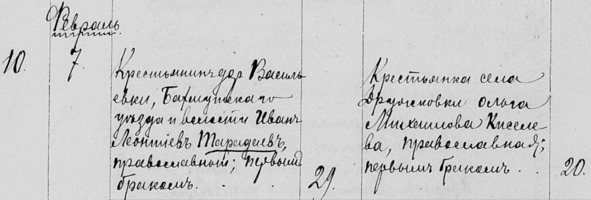 Февраль
10.
7.
Крестьянинъ дер. Василь
евки, Бахмутскаго
уѣзда и волости Иванъ
Леонтіевъ Тарадаевъ,
православный; первымъ
бракомъ.
29.
Крестьянка села
Дружковки Ольга
Михаилова Киселе
ва, православная;
первымъ бракомъ.
20.